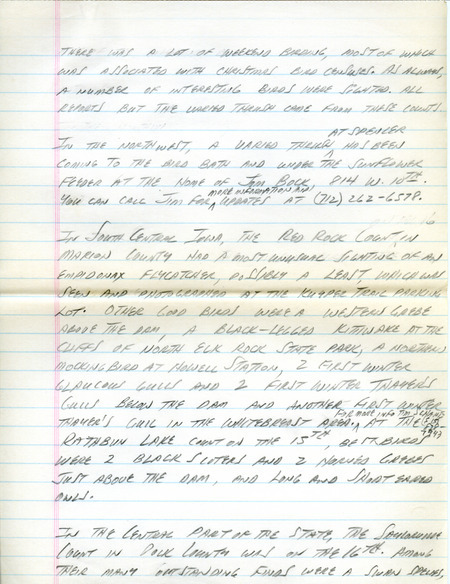 THERE WAS A LOT OF WEEKEND BIRDING, MOST OF WHICH
WAS ASSOCIATED WITH CHRISTMAS BIRD CENSUSES. AS ALWAYS,
A NUMBER OF INTERESTING BIRDS WERE SIGHTED. ALL
REPORTS BUT THE VARIED THRUSH CAME FROM THESE COUNTS.
AT SPENCER
IN THE NORTHWEST, A VARIED THRUSH ^ HAS BEEN
COMING TO THE BIRD BATH AND UNDER THE SUNFLOWER
FEEDER AT THE HOME OF JIM BOCK 914 W. 10TH.
MORE INFORMATION AND
YOU CAN CALL JIM FOR ^ UPDATES AT (712) 262-6578.
IN SOUTH CENTRAL IOWA, THE RED ROCK COUNT, IN
MARION COUNTY HAD A MOST UNUSUAL SIGHTING OF AN
EMPIDONAX FLYCATCHER, POSSIBLY A LEAST, WHICH WAS
SEEN AND PHOTOGRAPHED AT THE KUYPER TRAIL PARKING
LOT. OTHER GOOD BIRDS WERE A WESTERN GREBE
ABOVE THE DAM, A BLACK-LEGGED KITTIWAKE AT THE
CLIFFS OF NORTH ELK ROCK STATE PARK, A NORTHERN
MOCKINGBIRD AT HOWELL STATION, 2 FIRST WINTER
GLAUCOUS GULLS AND 2 FIRST WINTER THAYERS
GULLS BELOW THE DAM AND ANOTHER FIRST WINTER
FOR MORE INFO
THAYER'S GULL IN THE WHITEBREAST AREA. ^ AT THE
RATHBUN LAKE COUNT ON THE 15TH BEST BIRDS
WERE 2 BLACK SCOTERS AND 2 HORNED GREBES
JUST ABOVE THE DAM, AND LONG AND SHORT EARED
OWLS.
IN THE CENTRAL PART OF THE STATE, THE SAYLORVILLE
COUNT IN POLK COUNTY WAS ON THE 16TH. AMONG
THEIR MANY OUTSTANDING FINDS WERE A SWAN SPECIES,